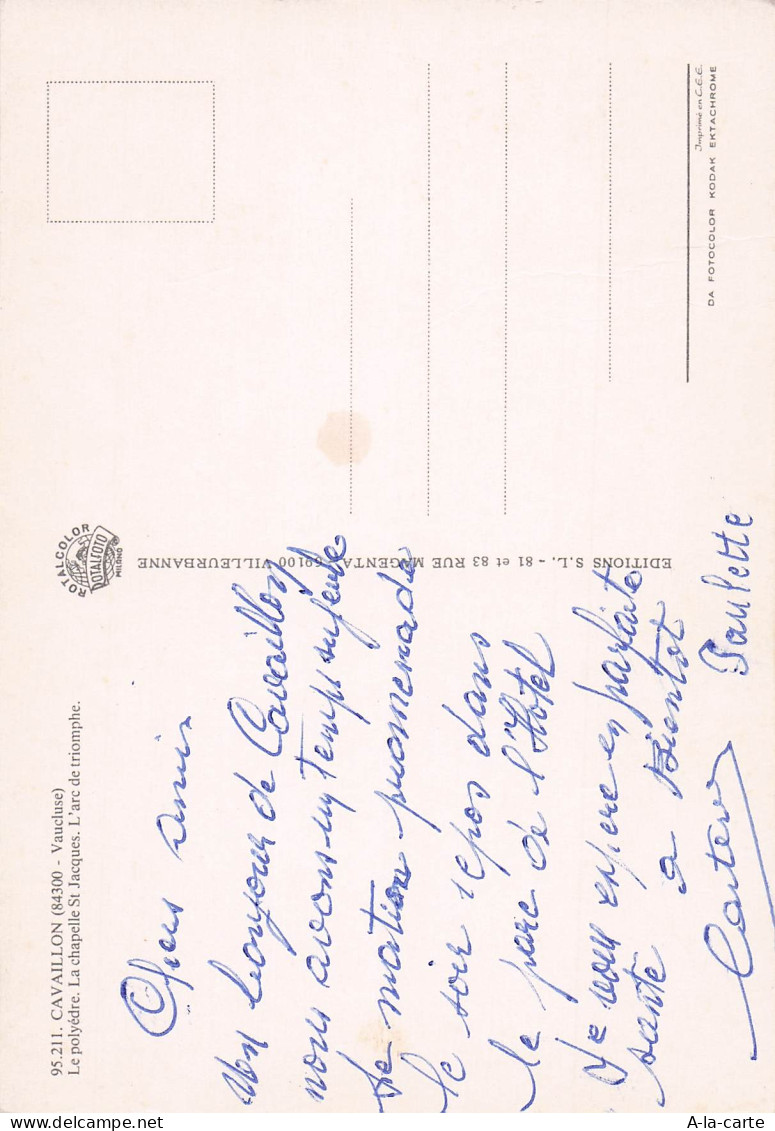 95.211. CAVAILLON (84300 - Vaucluse)
Le polyédre. La chapelle St Jacques. L'arc de triomphe.
ROTALCOLOR
ROTALFOTO
MILANO
EDITIONS S.L. - 81 et 83 RUE MAGENTA 69100 VILLEURBANNE
Imprimé en C.E.E.
DA FOTOCOLOR KODAK EKTACHROME
Chers amis
Un bonjour de Cavaillon
nous avons un temps superbe
le matin promenade
le soir repos dans
le parc de l'Hôtel
Je vous espere en parfaite
santé a Bientot
Paulette
A-la-carte